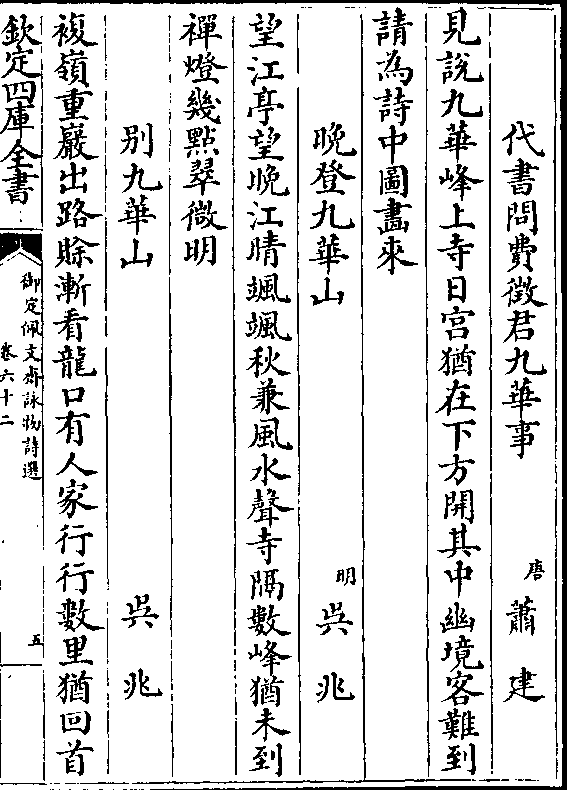 代書問費徵君九華事
唐 蕭建
見說九華峰上寺日宮猶在下方開其中幽境客難到
請為詩中圖畫來
晚登九華山
明 吳兆
望江亭望晚江晴颯颯秋兼風水聲寺隔數峰猶未到
禪燈幾點翠微明
別九華山
吳兆
複嶺重巖出路賒漸看龍口有人家行行數里猶回首
欽定四庫全書
御定佩文齋詠物詩選
卷六十二
五